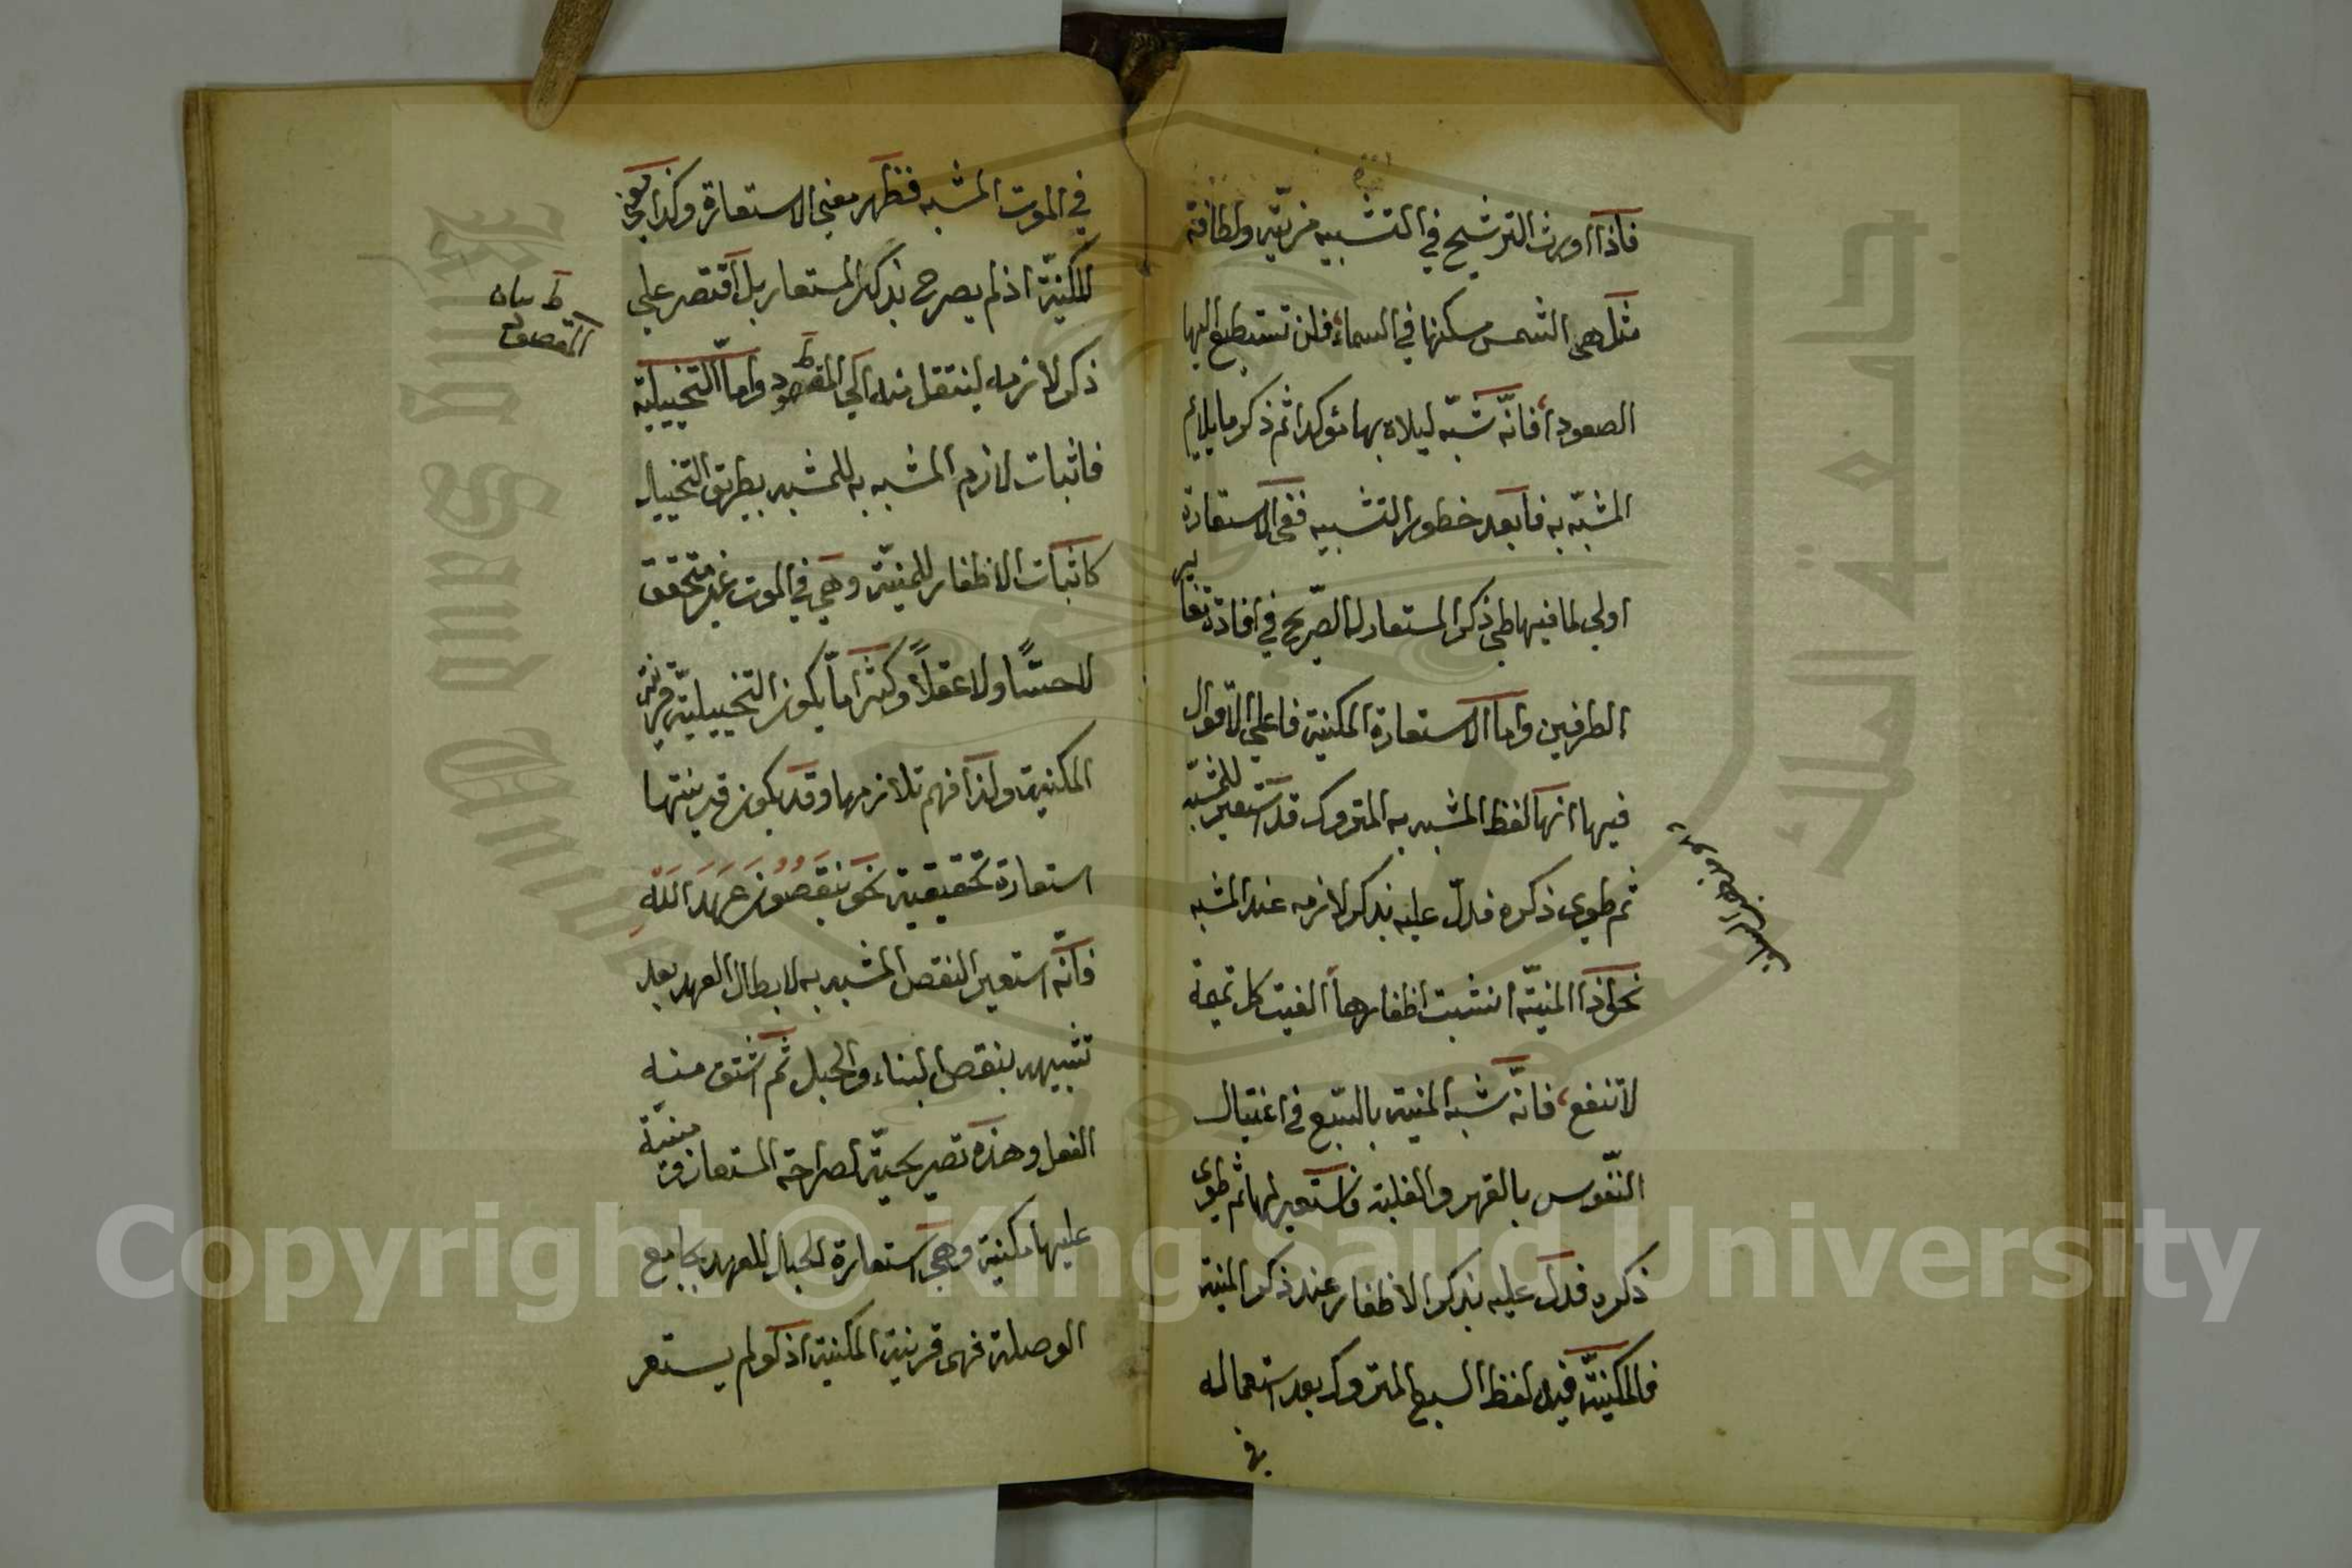 فاذا اورث الترشيح في التشبيه مزية ولطافة
مثل هي الشمس مسكنها في السماء فلن تستطيع اليها
الصعودا فانه شبه ليلاه بها مؤكدا ثم ذكر ما يلايم
المشبه به فابعد خطور التشبيه ففي الاستعارة
اولى لما فيها طي ذكر المستعار له الصريح في افادة تغاير
الطرفين واما الاستعارة المكنية فاعلى الاقوال
فيها انها لفظ المشبه به المتروك قد استعير للمشبه
ثم طوى ذكره فدل عليه بذكر لازمه عند المشبه
نحو اذا المنية انشبت اظفارها الفيت كل تميمة
لا تنفع فانه شبه المنية بالسبع في اغتيال
النفوس بالقهر والغلبة فاستعير لها ثم طوى
ذكره فدل عليه بذكر الاظفار عند ذكر المنية
فالمكنية فيه لفظ السبع المتروك بعد استعماله
في الموت المشبه فظهر معنى الاستعارة وكذا معنى
المكنية اذ لم يصرح بذكر المستعار بل اقتصر على
ذكر لازمه لينتقل منه الى المقصود واما التخييلية
ط بيان
المقصود
فاثبات لازم المشبه به للمشبه بطريق التخييل
كاثبات الاظفار للمنية وهي في الموت غير متحقق
لا حسًا ولا عقلاً وكثيرا ما يكون التخييلية قرينة
المكنية ولذا فهم تلازمها وقد يكون قرينتها
استعارة تحقيقية نحو ينقضون عهد الله
فانه استعير النقض المشبه به لابطال العهد بعد
تشبيهه بنقض البناء والحبل ثم اشتق منه
الفعل وهذه تصريحية لصراحة المستعار ومبنية
عليها مكنية وهي استعارة الحبل للعهد بجامع
الوصلة فهي قرينة المكنية اذ لو لم يستعر